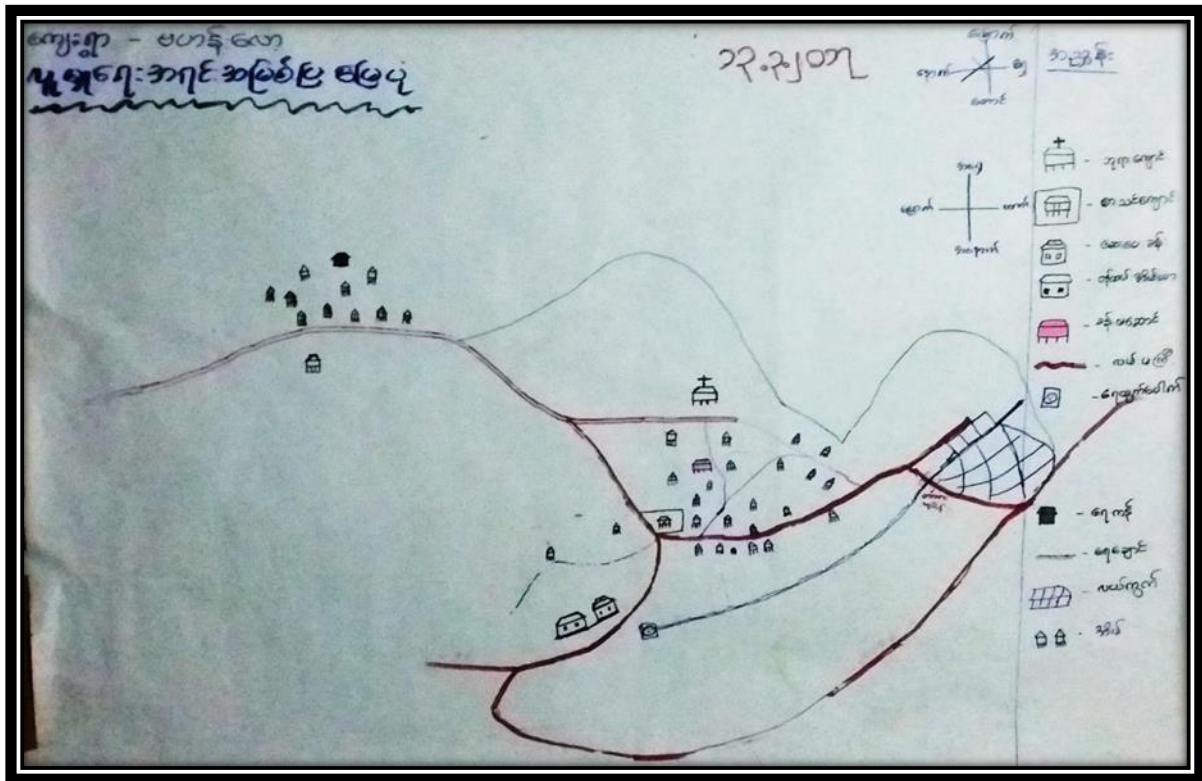 ကျေးရွာ - မဟန်လော
လူမှုရေးအရင်းအမြစ်ပြ မြေပုံ
မြောက်
နောက်
တောင်
အညွှန်း
အရှေ့
မြောက်
တောင်
အနောက်
ဘုရားကျောင်း
စာသင်ကျောင်း
ဆေးပေးခန်း
ခန်းမဆောင်
လမ်းမကြီး
ရေထွက်ပေါက်
ရေကန်
ရေချောင်း
လယ်ကွက်
အိမ်